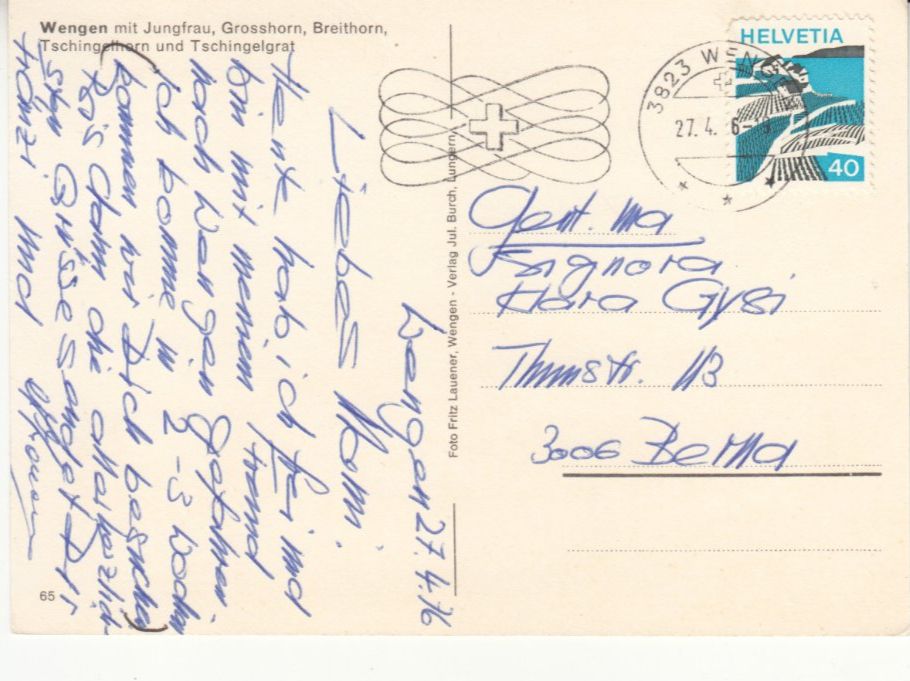 Wengen mit Jungfrau, Grosshorn, Breithorn,
Tschingelhorn und Tschingelgrat
HELVETIA
40
3823 WENGEN
27. 4.
Foto Fritz Lauener, Wengen - Verlag Jul. Burch, Lungern
65
Wengen 27.4.76
Liebes Mom.
Heute hab ich frei und
bin mit meinem Freund
nach Wengen gefahren.
Ich komme in 2-3 Wochen
(kommen wir Dich besuchen)
Bis dann die allerherzlich-
sten Grüsse sendet Dir
Franzi und
Gent. ma
Signora
Klara Gysi
Thunstr. 113
3006 Berna